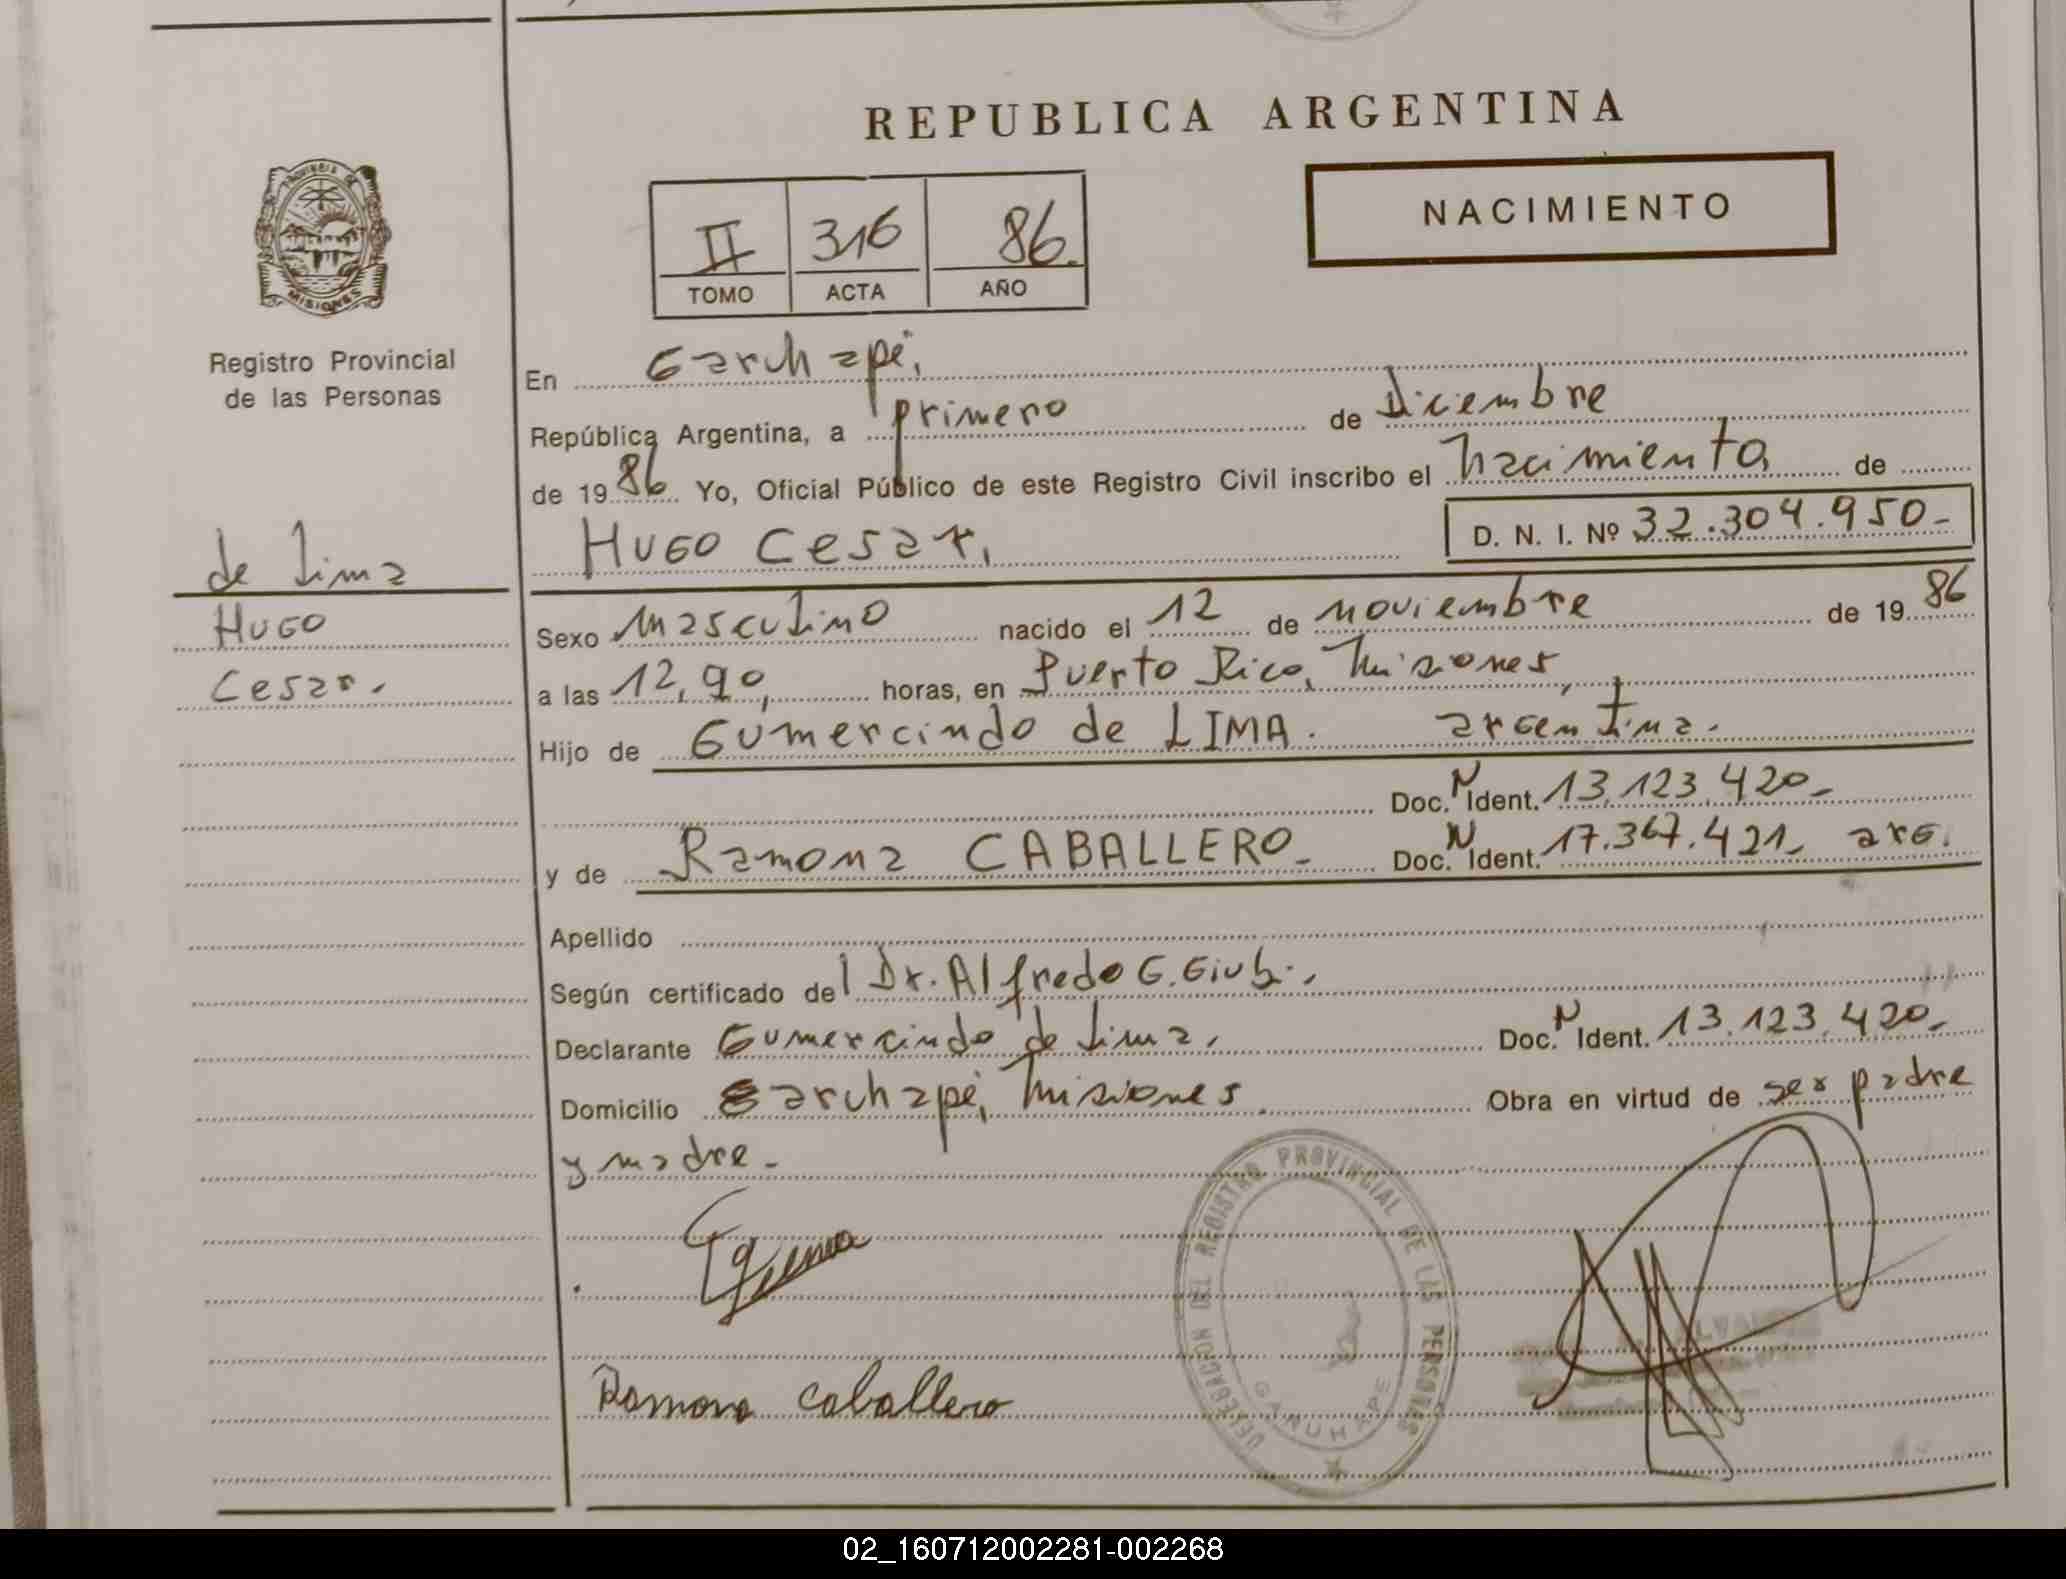 REPUBLICA ARGENTINA
PROVINCIA DE
MISIONES
Registro Provincial
de las Personas
II 316 86.
TOMO ACTA AÑO
NACIMIENTO
En Garuhapé,
República Argentina, a primero de diciembre
de 1986 Yo, Oficial Público de este Registro Civil inscribo el nacimiento de
HUGO Cesar, D. N. I. Nº 32.304.950-
de Lima
HUGO
Cesar.
Sexo masculino nacido el 12 de noviembre de 1986
a las 12, horas, en Puerto Rico, Misiones,
Hijo de Gumercindo de LIMA. argentina.
Doc. N Ident. 13.123.420-
y de Ramona CABALLERO- Doc. N Ident. 17.367.421- arg.
Apellido
Según certificado del Dr. Alfredo G.
Declarante Gumercindo de Lima, Doc. N Ident. 13.123.420-
Domicilio Garuhapé, Misiones. Obra en virtud de ser padre
y madre-
Ramona Caballero
DELEGACION DEL REGISTRO PROVINCIAL DE LAS PERSONAS
GARUHAPE
02_160712002281-002268